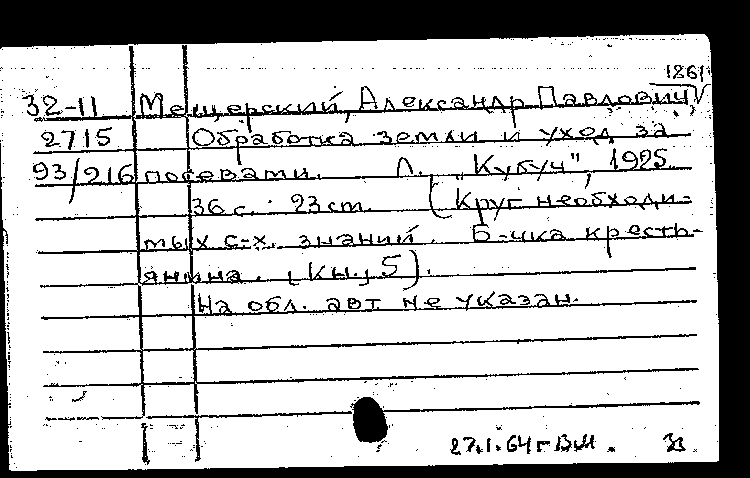 1861
32-11 Мещерский, Александр Павлович
2715 Обработка земли и уход за
93/216 посевами. Л., "Кубуч", 1925.
36 с. 23 ст. (Круг необходи-
мых с-х. знаний. Б-чка кресть-
янина. [Кн.] 5).
На обл. авт. не указан.
27.1.64 г.